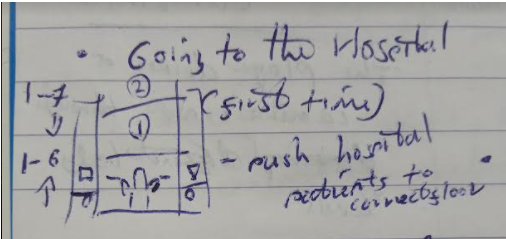 • Going to the Hospital
1-7 ② (first time)
①
1-6 - push hospital
patients to
correct floor